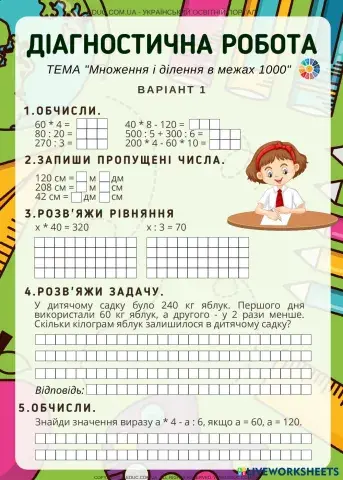 EDUC.COM.UA - УКРАЇНСЬКИЙ ОСВІТНІЙ ПОРТАЛ
ДІАГНОСТИЧНА РОБОТА
ТЕМА "Множення і ділення в межах 1000"
ВАРІАНТ 1
1.ОБЧИСЛИ.
60 * 4 = 40 * 8 - 120 =
80 : 20 = 500 : 5 + 300 : 6 =
270 : 3 = 200 * 4 - 60 * 10 =
2.ЗАПИШИ ПРОПУЩЕНІ ЧИСЛА.
120 см = м дм
208 см = м см
42 см = дм см
3.РОЗВ'ЯЖИ РІВНЯННЯ
х * 40 = 320 х : 3 = 70
4.РОЗВ'ЯЖИ ЗАДАЧУ.
У дитячому садку було 240 кг яблук. Першого дня
використали 60 кг яблук, а другого - у 2 рази менше.
Скільки кілограм яблук залишилося в дитячому садку?
Відповідь:
5.ОБЧИСЛИ.
Знайди значення виразу а * 4 - а : 6, якщо а = 60, а = 120.
LIVEWORKSHEETS